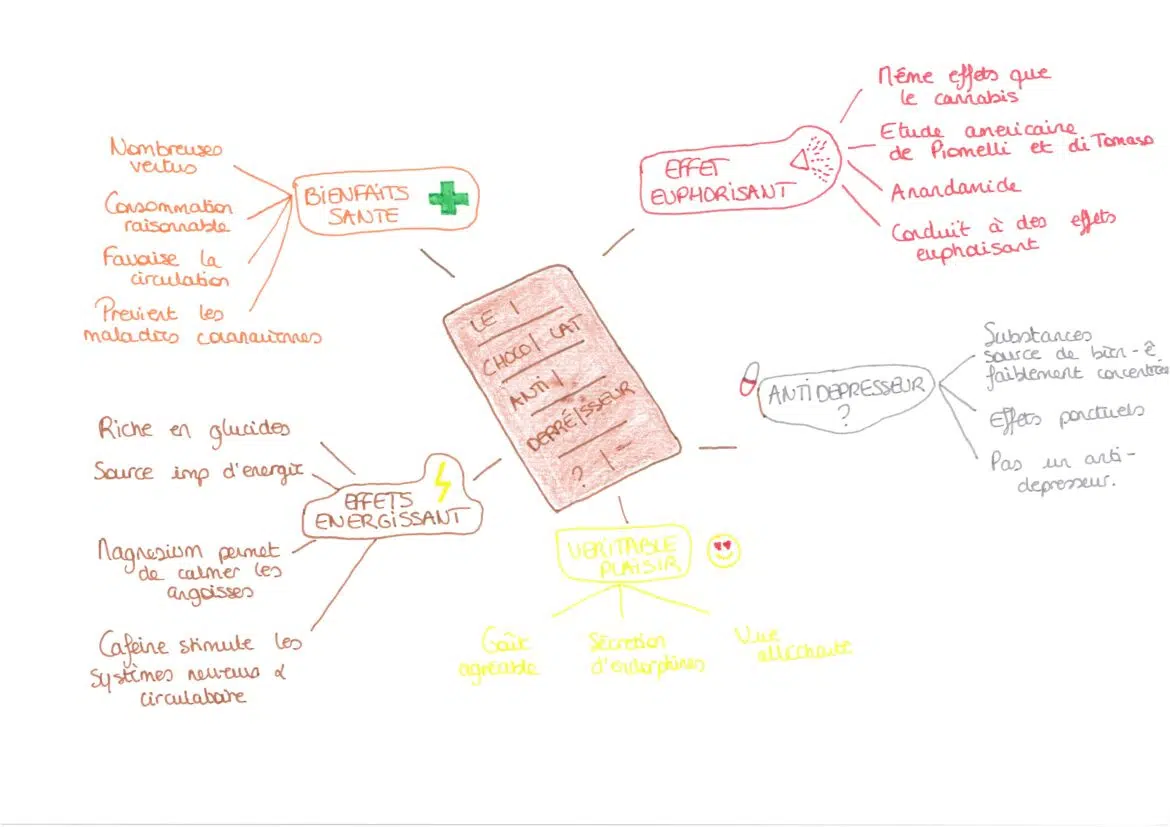 LE
CHOCOLAT
ANTI
DEPRESSEUR
?
BIENFAITS
SANTE
Nombreuses
vertus
Consommation
raisonnable
Favorise la
circulation
Previent les
maladies coronariennes
EFFET
EUPHORISANT
Même effets que
le cannabis
Etude americaine
de Piomelli et di Tomaso
Anandamide
Conduit à des effets
euphorisant
ANTIDEPRESSEUR
?
Substances
source de bien-ê
faiblement concentrées
Effets ponctuels
Pas un anti-
depresseur.
VERITABLE
PLAISIR
Goût
agréable
Sécretion
d'endorphines
Vue
alléchante
EFFETS
ENERGISSANT
Riche en glucides
Source imp d'energie
Magnesium permet
de calmer les
angoisses
Caféine stimule les
systèmes nerveux &
circulatoire